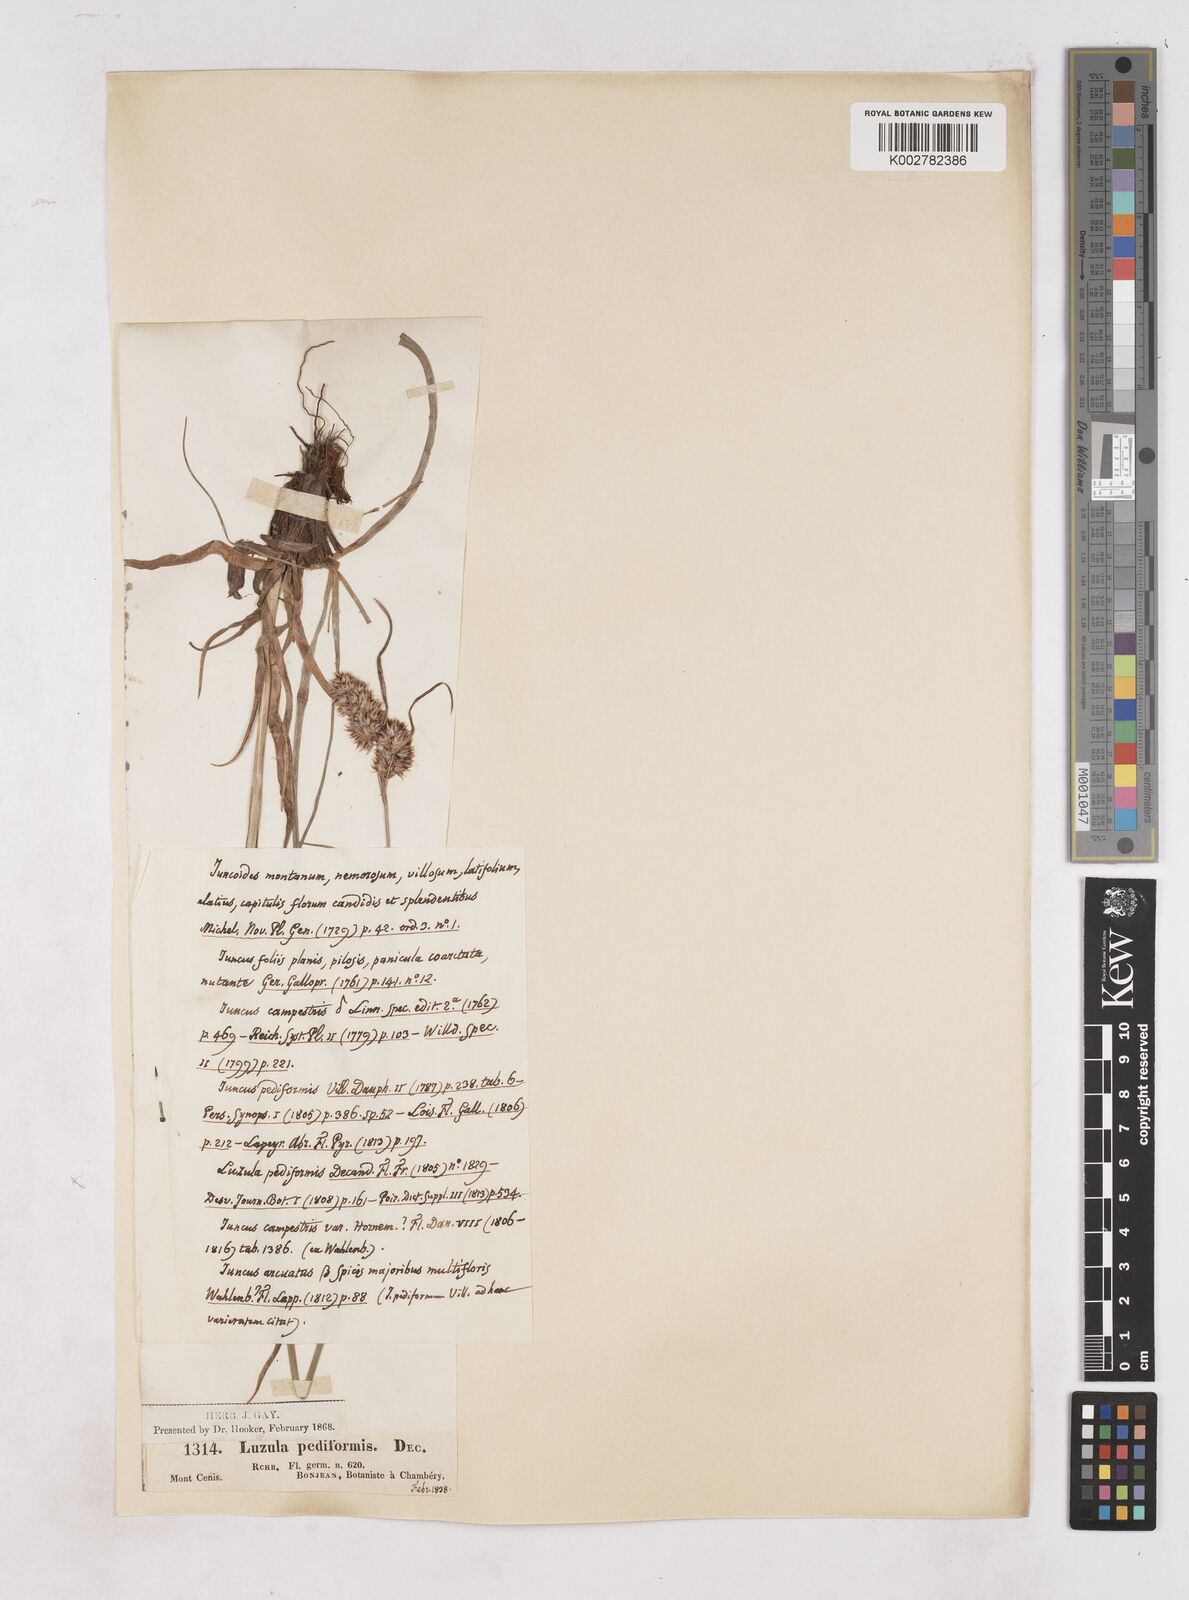 ROYAL BOTANIC GARDENS KEW
K002782386
Juncoides montanum, nemorosum, villosum, latifolium,
elatius, capitulis florum candidis et splendentibus
Michel. Nov. Pl. Gen. (1729) p. 42. ord. 3. nº. 1.
Juncus foliis planis, pilosis, panicula coarctata,
nutante Ger. Gallopr. (1761) p. 141. nº. 12.
Juncus campestris δ Linn. Spec. edit. 2.ª (1762)
p. 469 – Reich. Syst. Pl. II (1779) p. 103 – Willd. Spec.
II (1799) p. 221.
Juncus pediformis Vill. Dauph. II (1787) p. 238. tab. 6 –
Pers. Synops. I (1805) p. 386. sp. 52 – Lois. Fl. Gall. (1806)
p. 212 – Lapeyr. Abr. Fl. Pyr. (1813) p. 197.
Luzula pediformis Decand. Fl. Fr. (1805) nº. 1829 –
Desv. Journ. Bot. I (1808) p. 161 – Poir. Dict. Suppl. III (1813) p. 534.
Juncus campestris var. Hornem.? Fl. Dan. VIII (1806–
1816) tab. 1386. (ex Wahlenb.).
Juncus arcuatus β Spicis majoribus multifloris
Wahlenb.? Fl. Lapp. (1812) p. 88 (J. pediformem Vill. ad hanc
varietatem citat).
HERB. J. GAY.
Presented by Dr. Hooker, February 1868.
1314. Luzula pediformis. DEC.
RCHB. Fl. germ. n. 620.
Mont Cenis. BONJEAN, Botaniste à Chambéry.
Febr. 1838.
inches
Density
Don Williams
M001047
centimeters
copyright reserved
Royal Botanic Gardens
Kew
0 1 2 3 4 5 6 7 8 9 10
cm